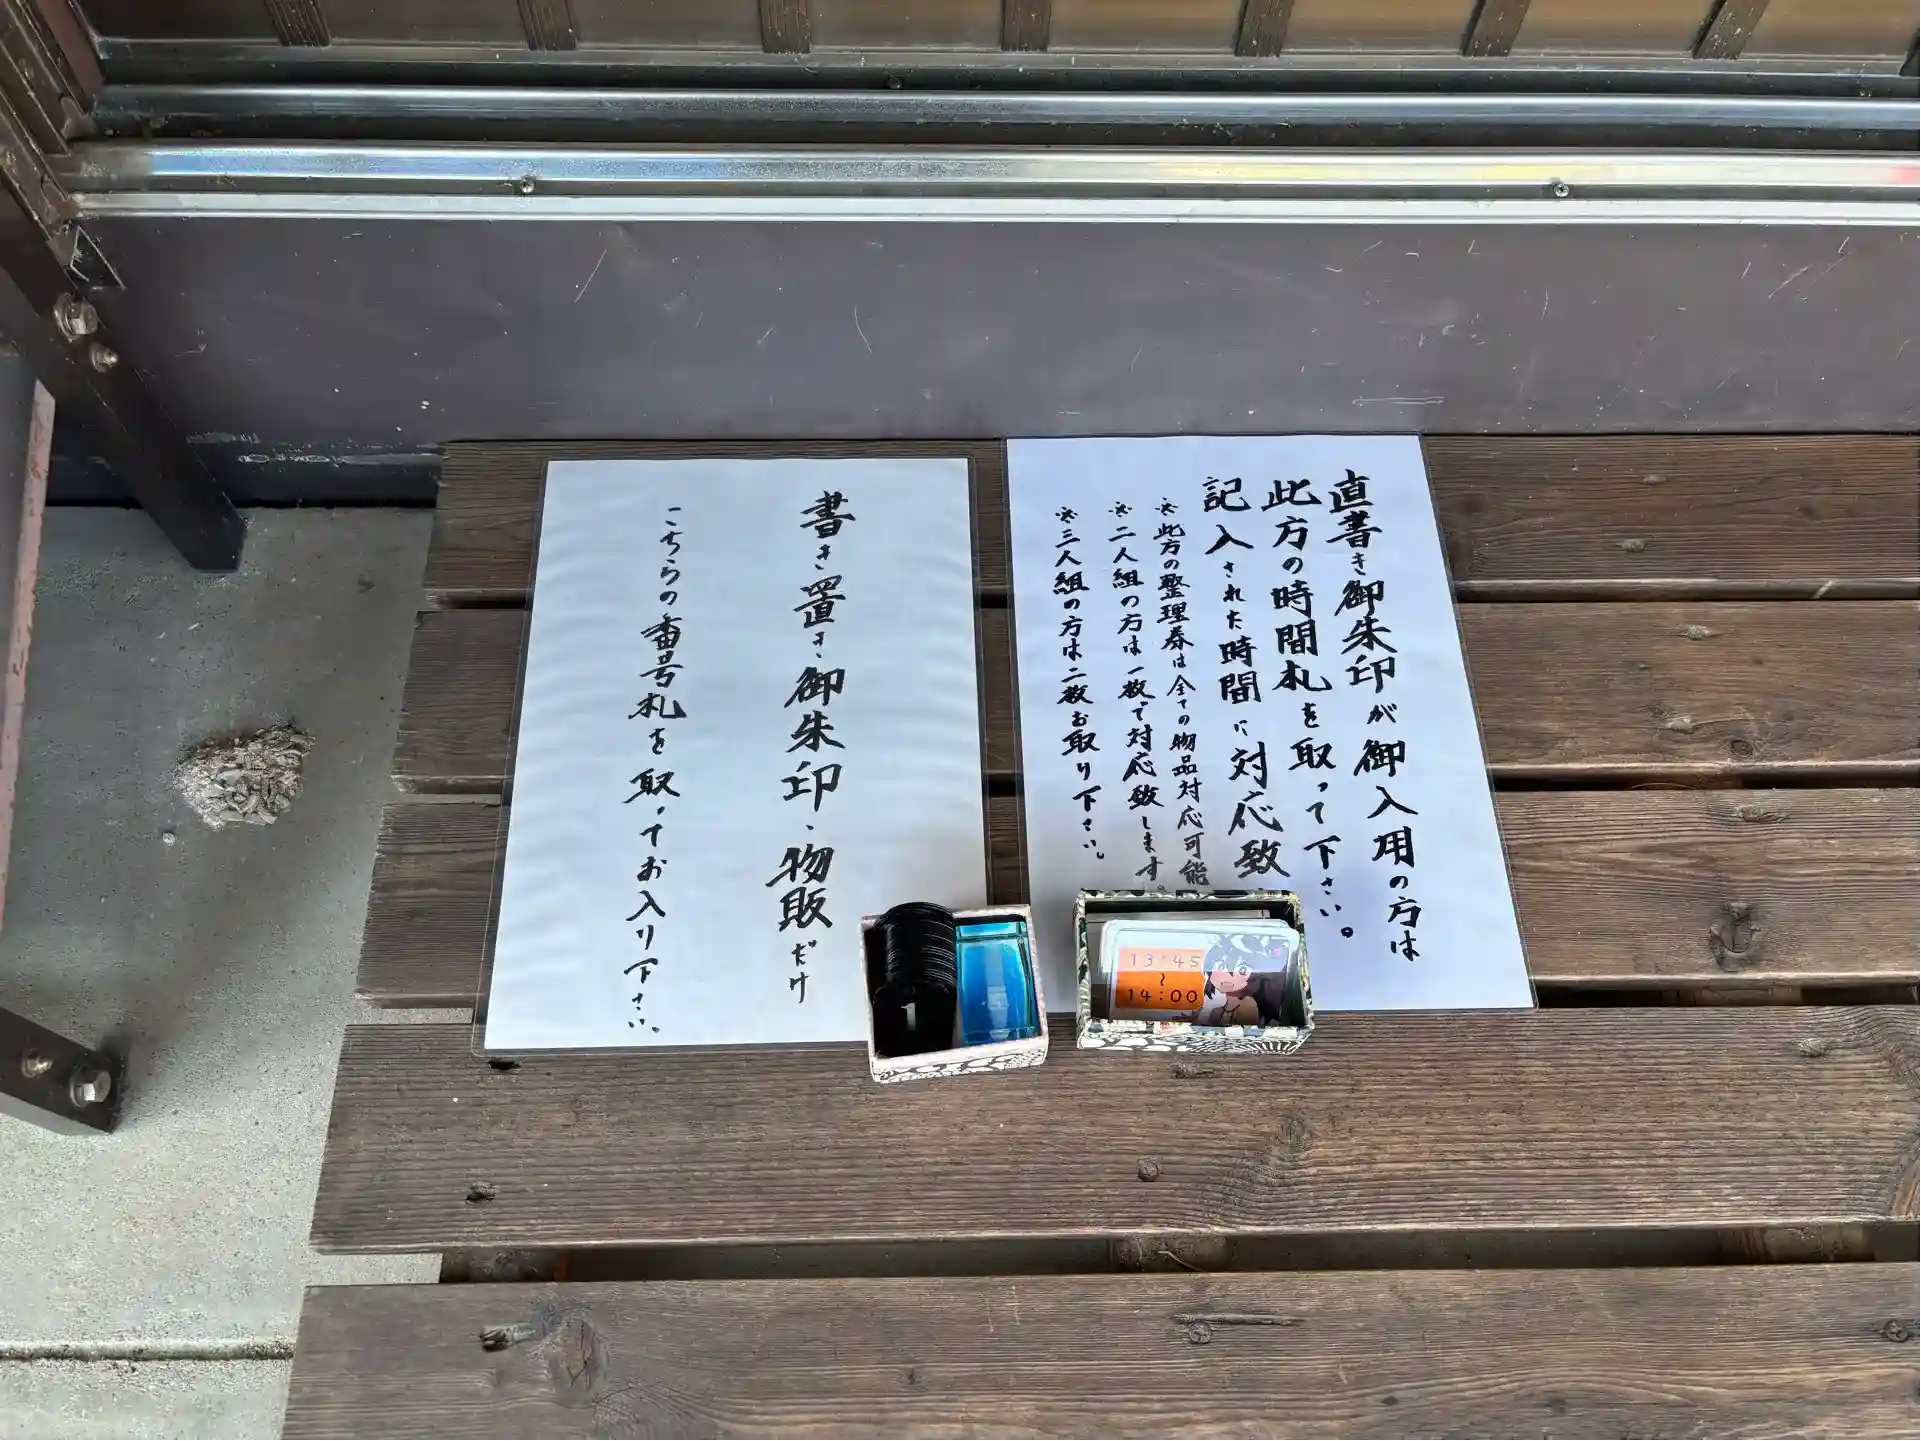 直書き御朱印が御入用の方は
此方の時間札を取って下さい。
記入された時間に対応致
※此方の整理券は全ての物品対応可能
※二人組の方は一枚で対応致します。
※三人組の方は二枚お取り下さい。
書き置き御朱印、物販だけ
こちらの番号札を取ってお入り下さい
1
13:45
~
14:00